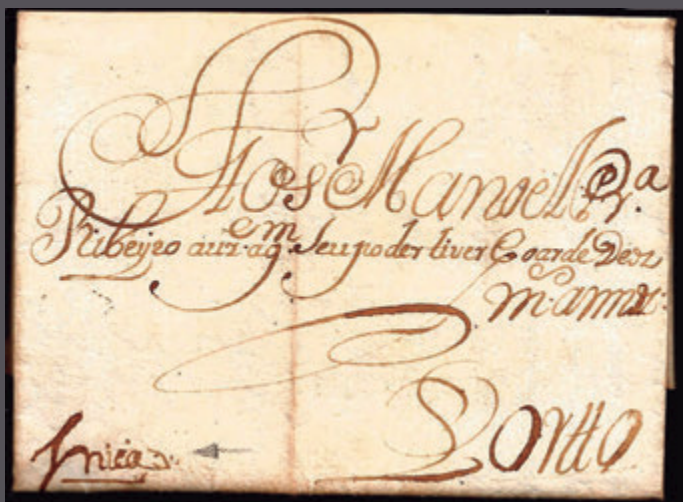 Sr
Jose Manoel Pra
Ribeyro auz. a q em seu poder tiver Goarde Deos
m. annos
Porto
Unica